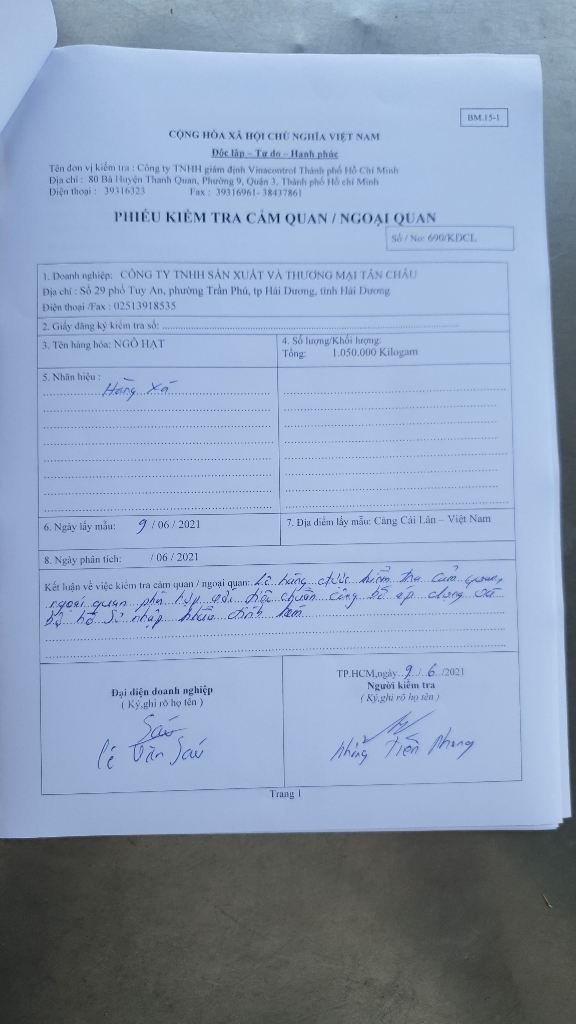 BM.15-1
CỘNG HÒA XÃ HỘI CHỦ NGHĨA VIỆT NAM
Độc lập – Tự do – Hạnh phúc
Tên đơn vị kiểm tra : Công ty TNHH giám định Vinacontrol Thành phố Hồ Chí Minh
Địa chỉ : 80 Bà Huyện Thanh Quan, Phường 9, Quận 3, Thành phố Hồ chí Minh
Điện thoại : 39316323 Fax : 39316961- 38437861
PHIẾU KIỂM TRA CẢM QUAN / NGOẠI QUAN
Số / No: 690/KDCL
1. Doanh nghiệp: CÔNG TY TNHH SẢN XUẤT VÀ THƯƠNG MẠI TÂN CHÂU
Địa chỉ : Số 29 phố Tuy An, phường Trần Phú, tp Hải Dương, tỉnh Hải Dương
Điện thoại /Fax : 02513918535
2. Giấy đăng ký kiểm tra số:
3. Tên hàng hóa: NGÔ HẠT
4. Số lượng/Khối lượng:
Tổng: 1.050.000 Kilogam
5. Nhãn hiệu :
Hàng xá
6. Ngày lấy mẫu: 9 / 06 / 2021
7. Địa điểm lấy mẫu: Cảng Cái Lân – Việt Nam
8. Ngày phân tích: / 06 / 2021
Kết luận về việc kiểm tra cảm quan / ngoại quan: Lô hàng được kiểm tra cảm quan,
ngoại quan phù hợp với tiêu chuẩn công bố áp dụng và
bộ hồ sơ nhập khẩu đính kèm
TP.HCM,ngày 9 / 6 /2021
Đại diện doanh nghiệp
( Ký,ghi rõ họ tên )
Người kiểm tra
( Ký,ghi rõ họ tên )
Sáu
Lê Văn Sáu
Tiến Phong
Trang 1